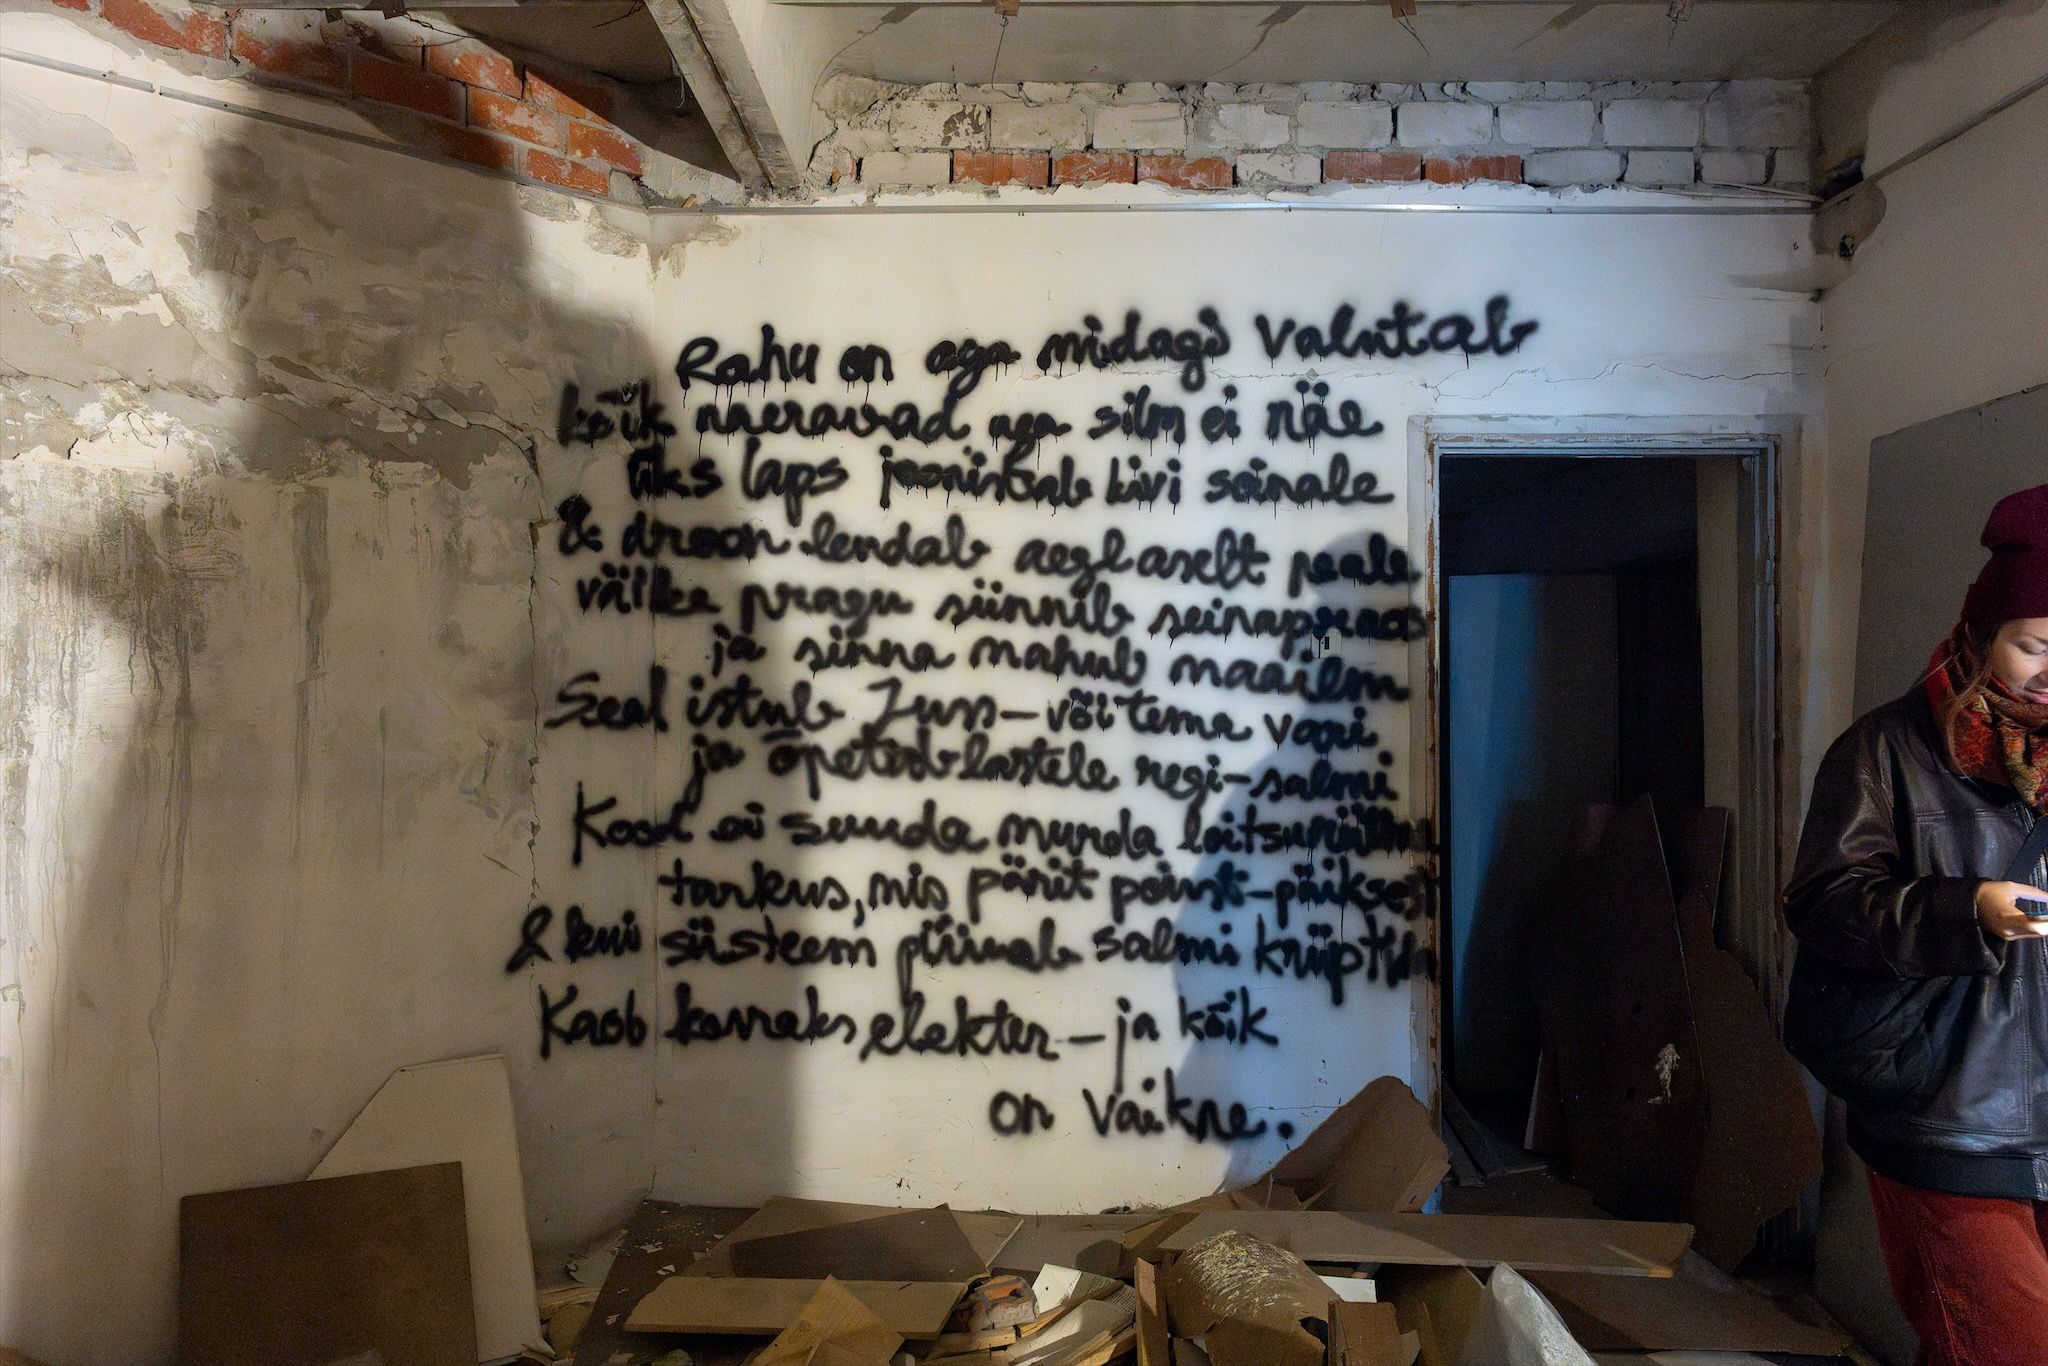 Rahu on aga midagi valutab
kõik naeravad aga silm ei näe
üks laps joonistab kivi seinale
& droon lendab aeglaselt peale
väike pragu sünnib seinapraos
ja sinna mahub maailm
Seal istub Juss – või tema vari
ja õpetab lastele regi-salmi
Kood ei suuda murda loitsuriitme
tarkus, mis pärit põust-päiksest
& kui süsteem püüab salmi krüptida
Kaob korraks elekter – ja kõik
on vaikne.